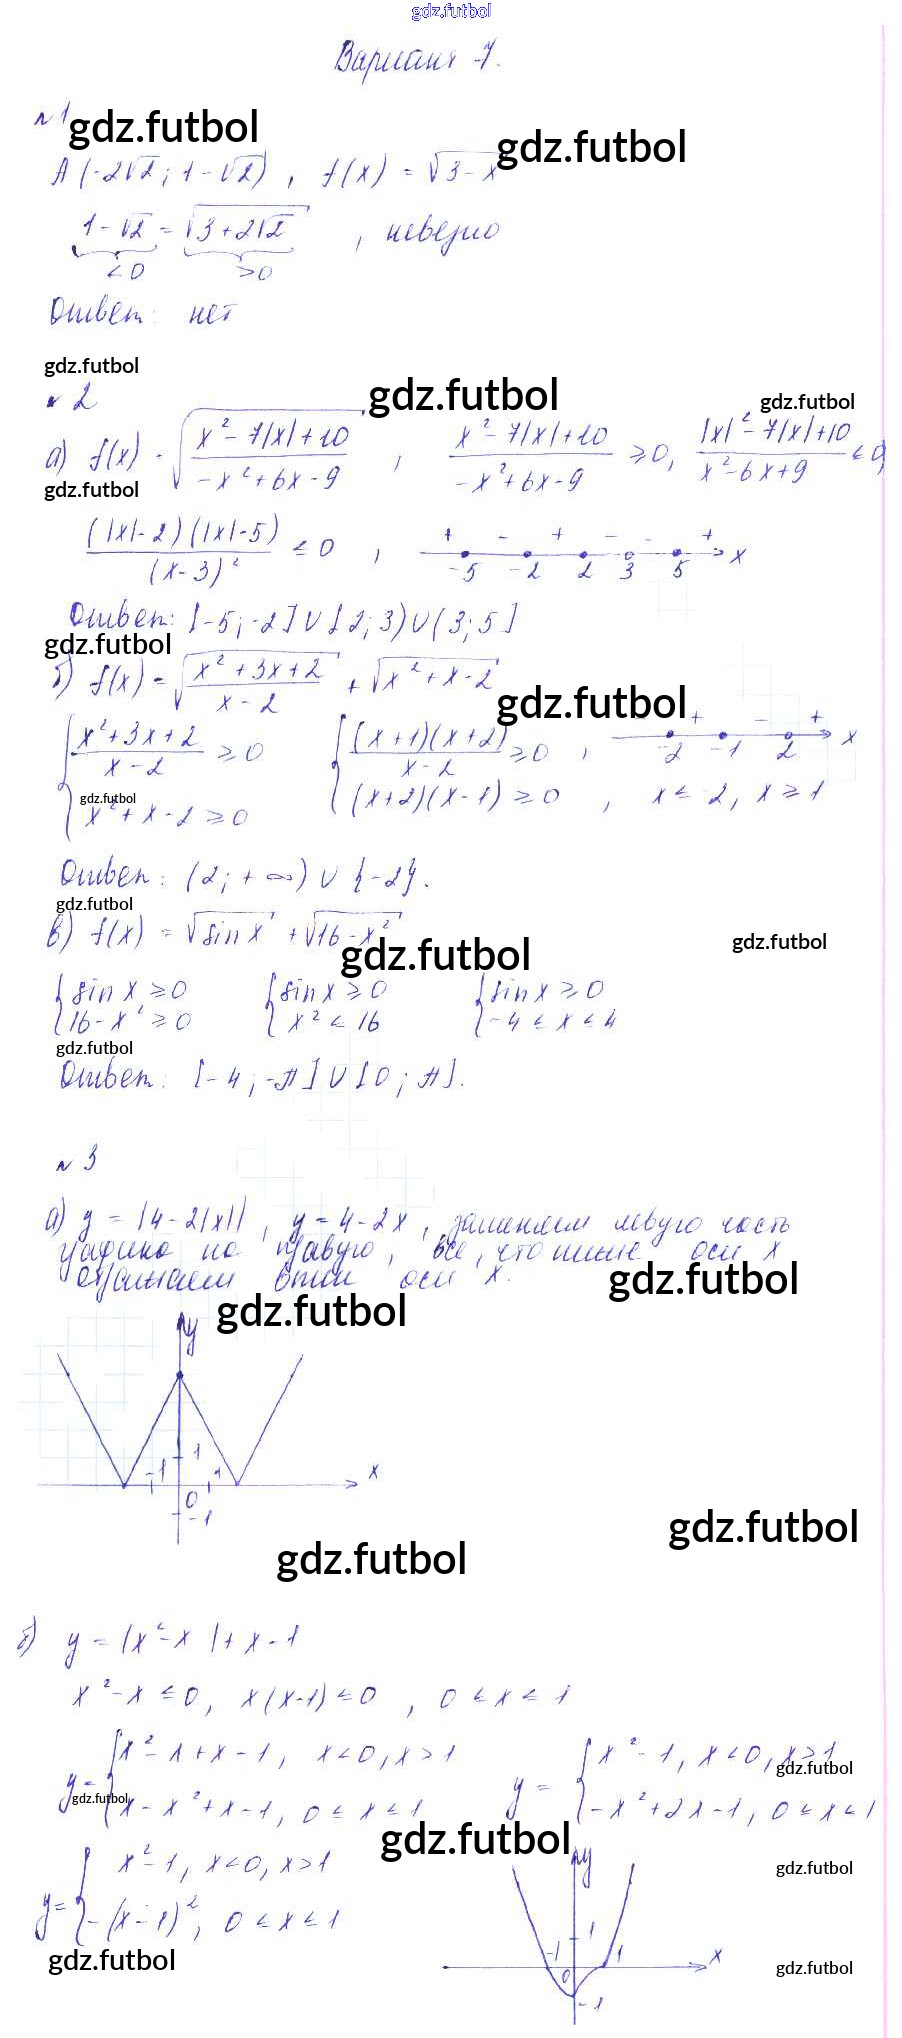 gdz.futbol
Вариант 7.
№1 gdz.futbol
gdz.futbol
A(-2√2; 1-√2), f(x) = √3-x
1-√2 = √3+2√2, неверно
<0 >0
Ответ: нет
gdz.futbol
№2 gdz.futbol gdz.futbol
а) f(x) = √(x²-7|x|+10)/(-x²+6x-9), (x²-7|x|+10)/(-x²+6x-9) ≥0, (|x|²-7|x|+10)/(x²-6x+9) ≤0,
gdz.futbol
((|x|-2)(|x|-5))/(x-3)² ≤ 0, + - + - - + -5 -2 2 3 5 x
Ответ: [-5;-2]∪[2;3)∪(3;5]
gdz.futbol
б) f(x) = √(x²+3x+2)/(x-2) + √x²+x-2
gdz.futbol
{(x²+3x+2)/(x-2) ≥0 {((x+1)(x+2))/(x-2) ≥0, - + - + -2 -1 2 x
gdz.futbol
x²+x-2≥0 (x+2)(x-1)≥0, x≤-2, x≥1
Ответ: (2;+∞)∪{-2}.
gdz.futbol
в) f(x) = √sin x + √16-x²
gdz.futbol gdz.futbol
{sin x ≥0 {sin x ≥0 {sin x ≥0
16-x²≥0 x²≤16 -4≤x≤4
gdz.futbol
Ответ: [-4;-π]∪[0;π].
№3
а) y = |4-2|x||, y=4-2x, заменяем левую часть
графика на правую, все, что ниже оси x
отражаем отн оси x.
gdz.futbol
gdz.futbol
y
1
-1 1 x
0
-1
gdz.futbol
gdz.futbol
б) y = |x²-x|+x-1
x²-x≤0, x(x-1)≤0, 0≤x≤1
y={x²-x+x-1, x<0, x>1 y={x²-1, x<0, x>1
gdz.futbol
gdz.futbol
x-x²+x-1, 0≤x≤1 -x²+2x-1, 0≤x≤1
gdz.futbol
y={x²-1, x<0, x>1 y
gdz.futbol
-(x-1)², 0≤x≤1 1
gdz.futbol -1 0 1 x
gdz.futbol
-1